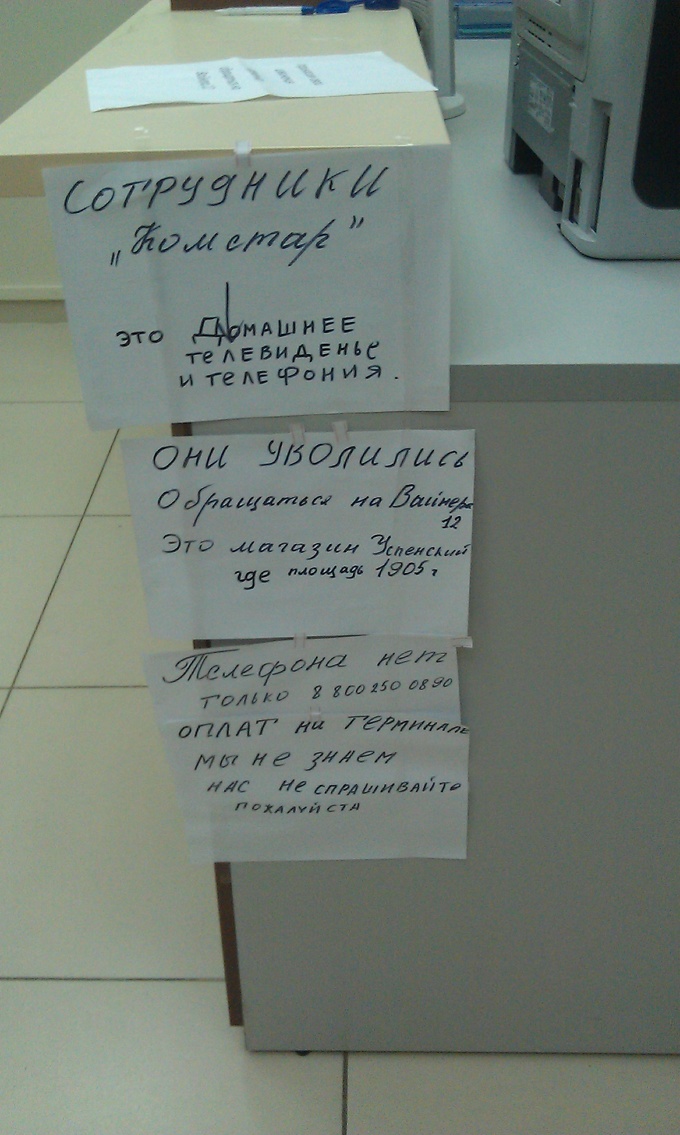 СОТРУДНИКИ
„Комстар”
это ДОМАШНЕЕ
ТЕЛЕВИДЕНЬЕ
И ТЕЛЕФОНИЯ.
ОНИ УВОЛИЛИСЬ
Обращаться на Вайнера
12
Это магазин Успенский
где площадь 1905 г
Телефона нет
ТОЛЬКО 8 800 250 0890
ОПЛАТ НИ ТЕРМИНАЛЕ
МЫ НЕ ЗНАЕМ
НАС НЕ СПРАШИВАЙТЕ
ПОЖАЛУЙСТА